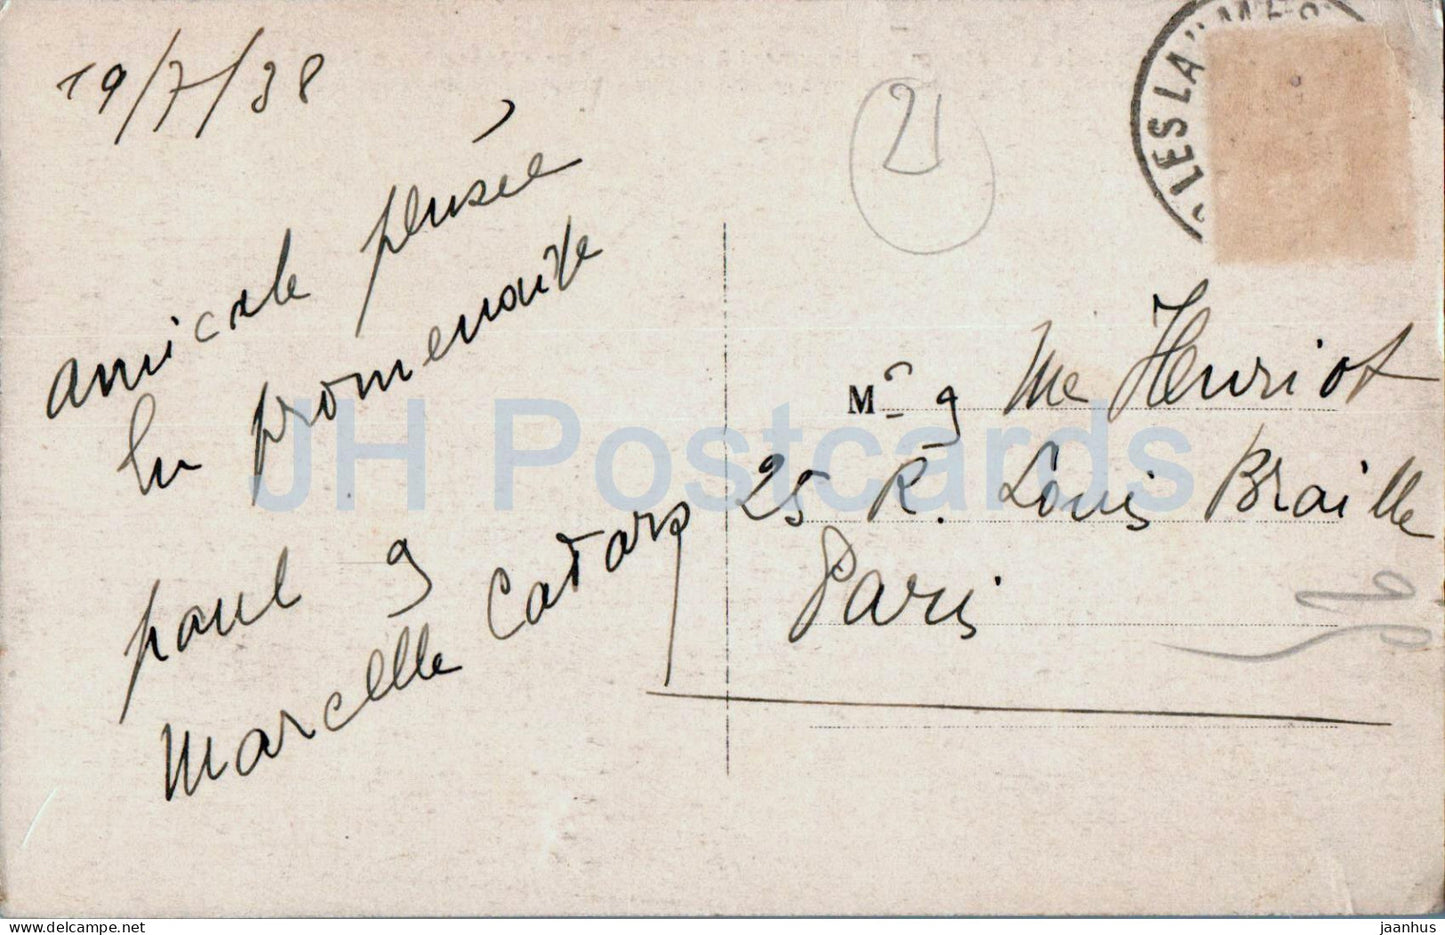 19/7/38
amicale pensée
en promenade
paul &
Marcelle Catarp
21
LES LAUMES
Mr & Me Henriot
25 R. Louis Braille
Paris
JH Postcards
delcampe.net
jaanhus